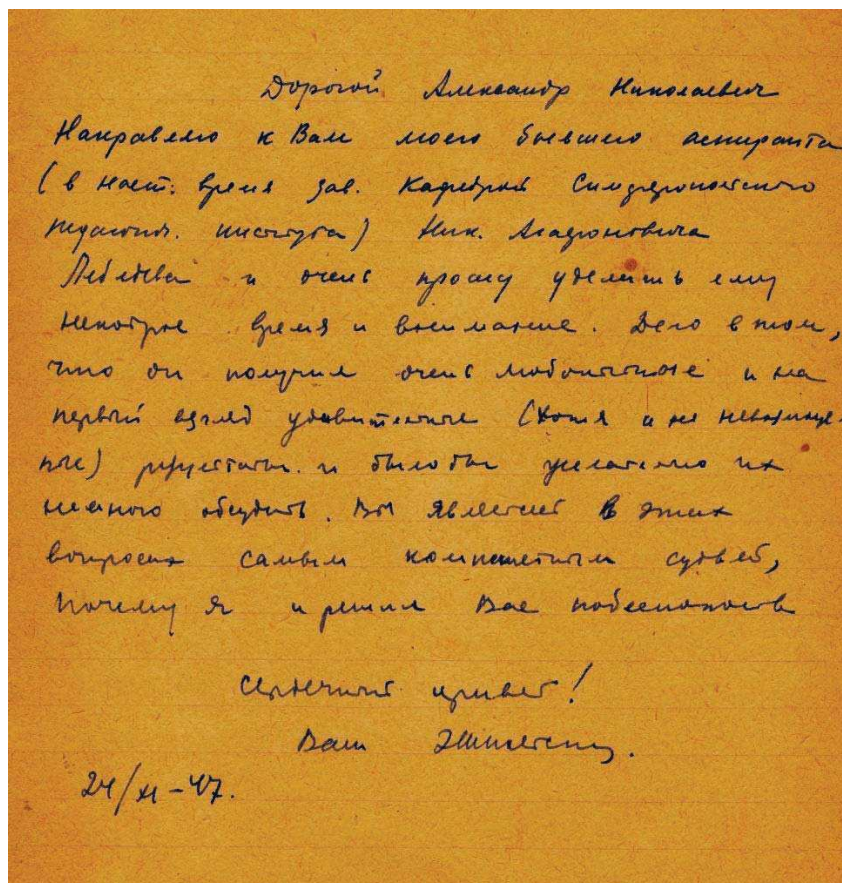 Дорогой Александр Николаевич
Направляю к Вам моего бывшего аспиранта
(в наст. время зав. Кафедрой Симферопольского
педагогич. института) Ник. Агафоновича
Лебедева и очень прошу уделить ему
некоторое время и внимание. Дело в том,
что он получил очень любопытные и на
первый взгляд удивительные (хотя и не невозмож-
ные) результаты. и было бы желательно их
немного обсудить. Вы являетесь в этих
вопросах самым компетентным судьей,
почему я и решил Вас побеспокоить
Сердечный привет!
Ваш
24/XI-47.